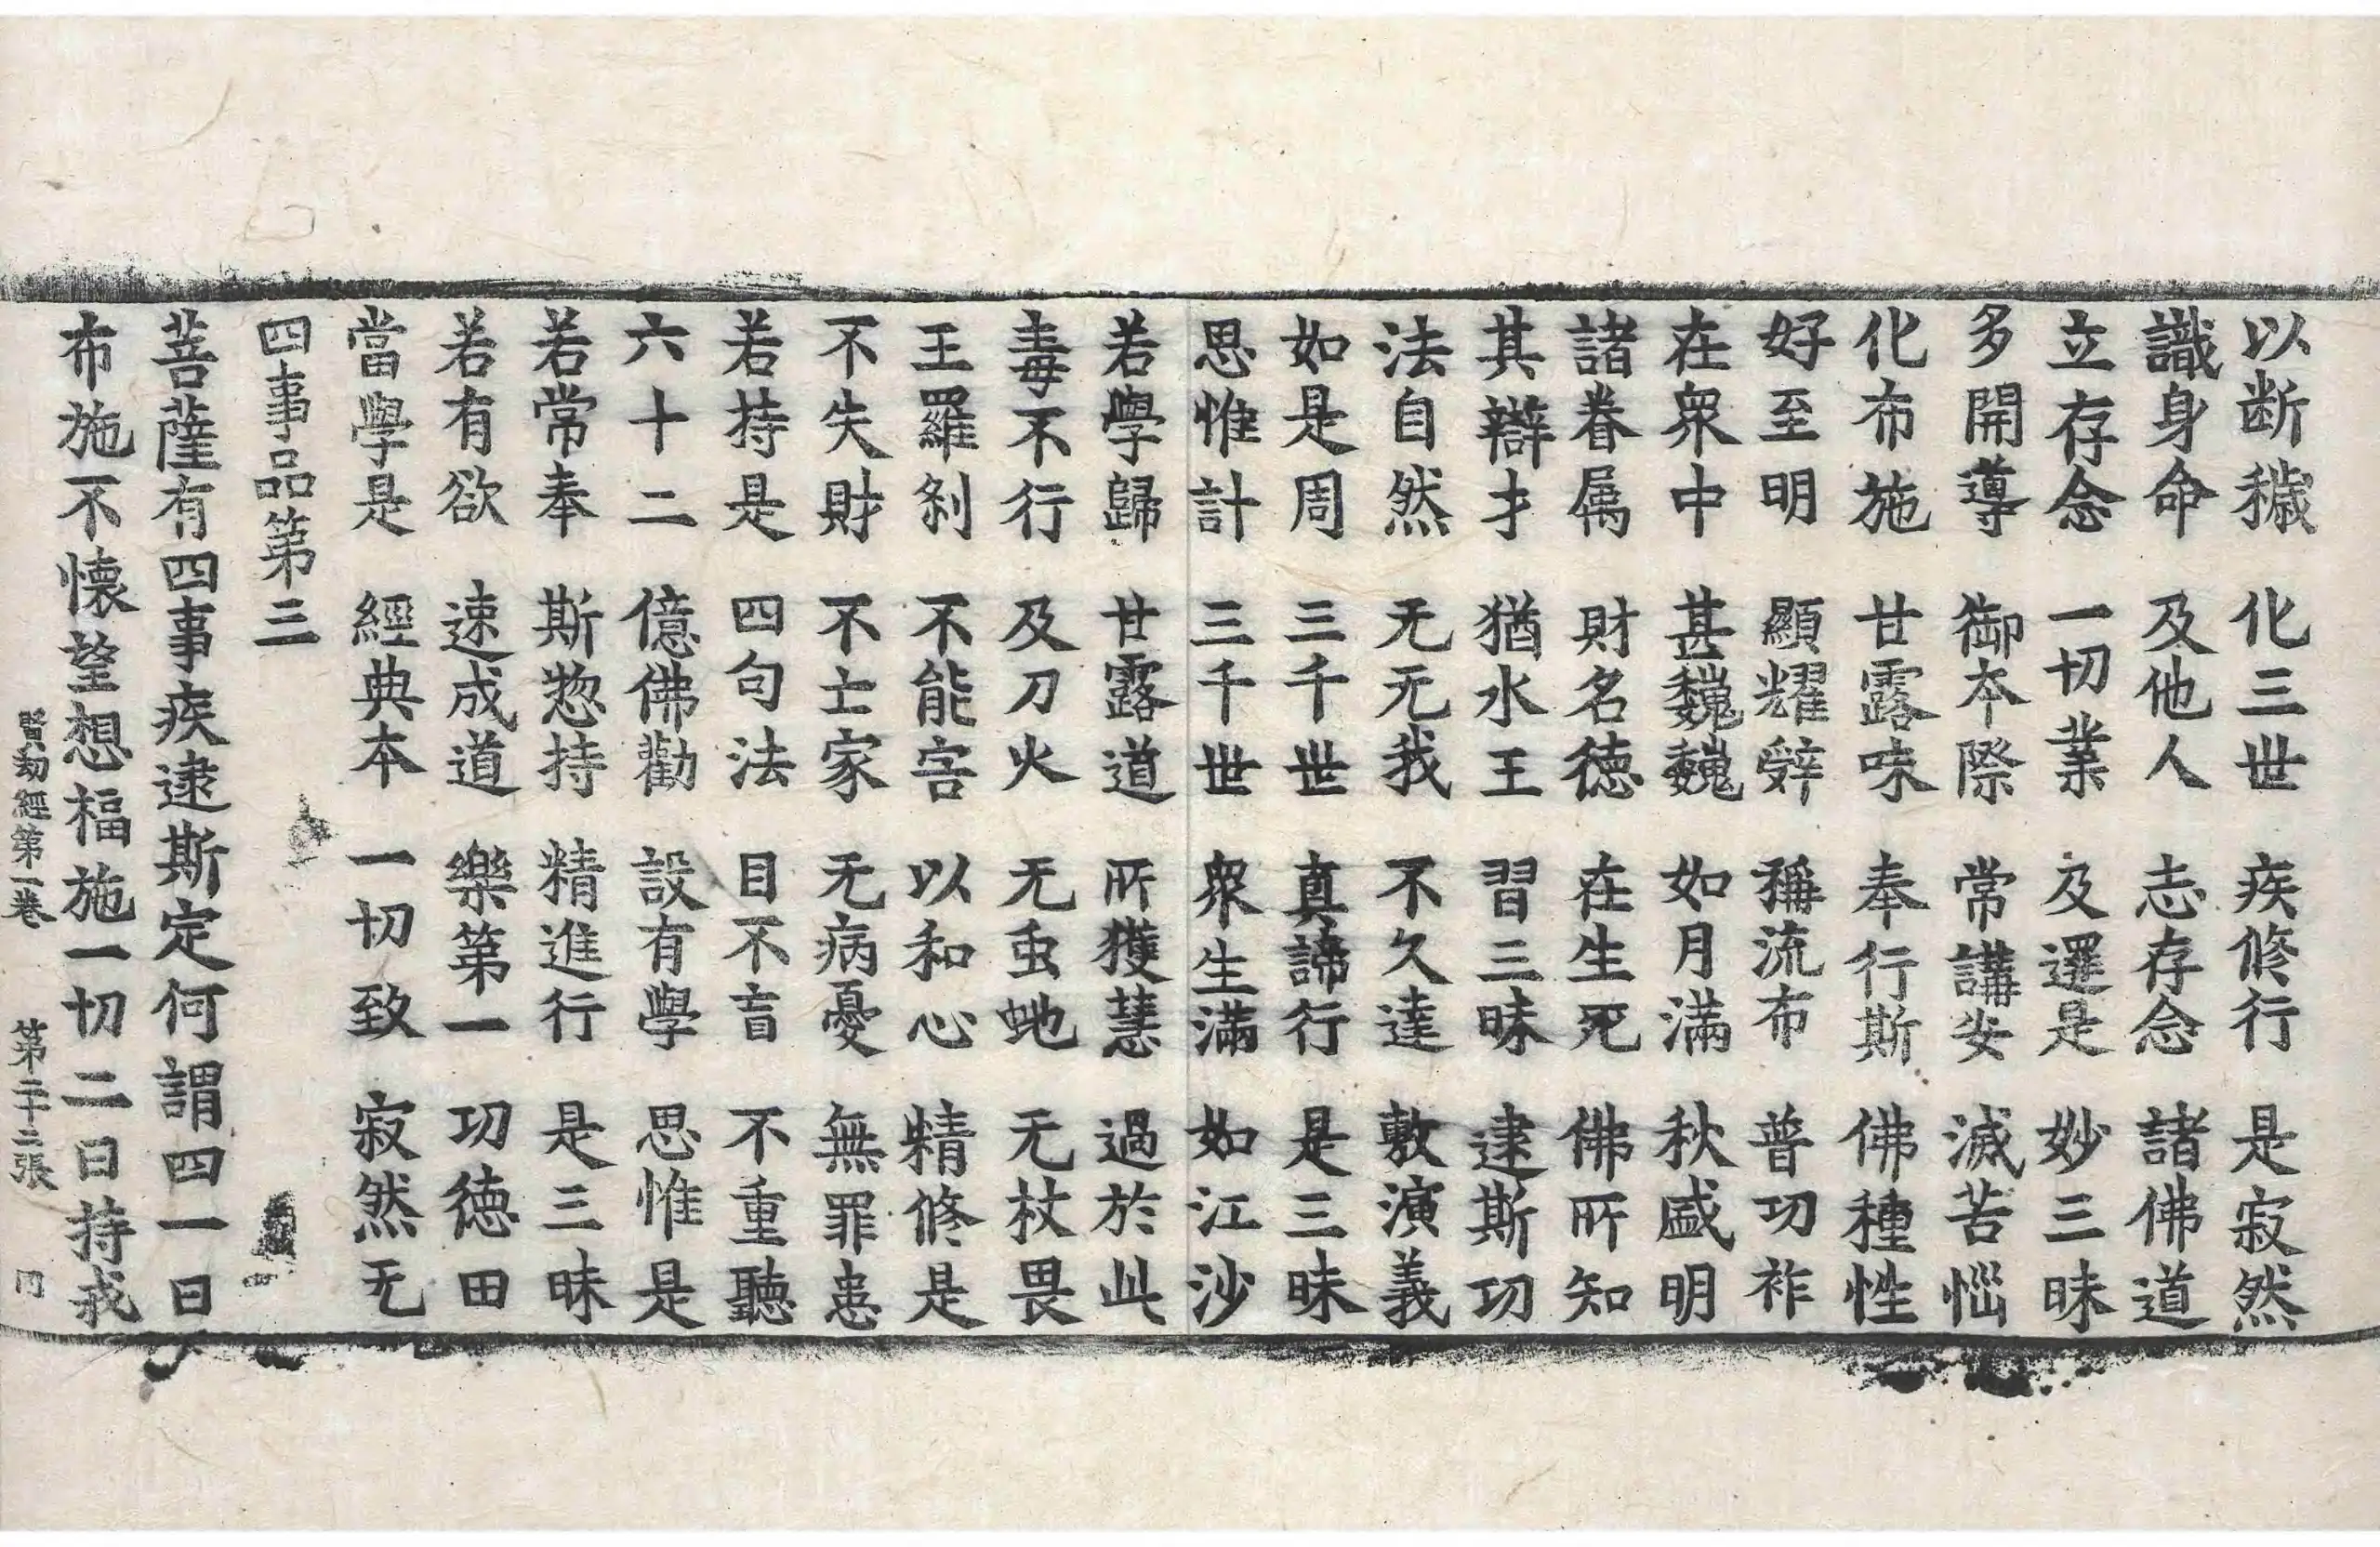 以断穢 化三世 疾修行 是寂然
識身命 及他人 志存念 諸佛道
立存念 一切業 及邏是 妙三昧
多開導 御本際 常講安 滅苦惱
化布施 甘露味 奉行斯 佛種性
好至明 顯耀辤 稱流布 普功祚
在衆中 甚巍巍 如月滿 秋盛明
諸眷属 財名德 在生死 佛所知
其辯才 猶水王 習三昧 逮斯功
法自然 无无我 不久達 敷演義
如是周 三千世 真諦行 是三昧
思惟計 三千世 衆生滿 如江沙
若學歸 甘露道 所獲慧 過於此
毒不行 及刀火 无虫虵 无杖畏
王羅剎 不能害 以和心 精修是
不失財 不士家 无病憂 無罪患
若持是 四句法 目不盲 不重聽
六十二 億佛勸 設有學 思惟是
若常奉 斯惣持 精進行 是三昧
若有欲 速成道 樂第一 功德田
當學是 經典本 一切致 寂然无
四事品第三
菩薩有四事疾逮斯定何謂四一曰
布施不懷望想福施一切二曰持戒
賢劫經第一卷 第二十二張